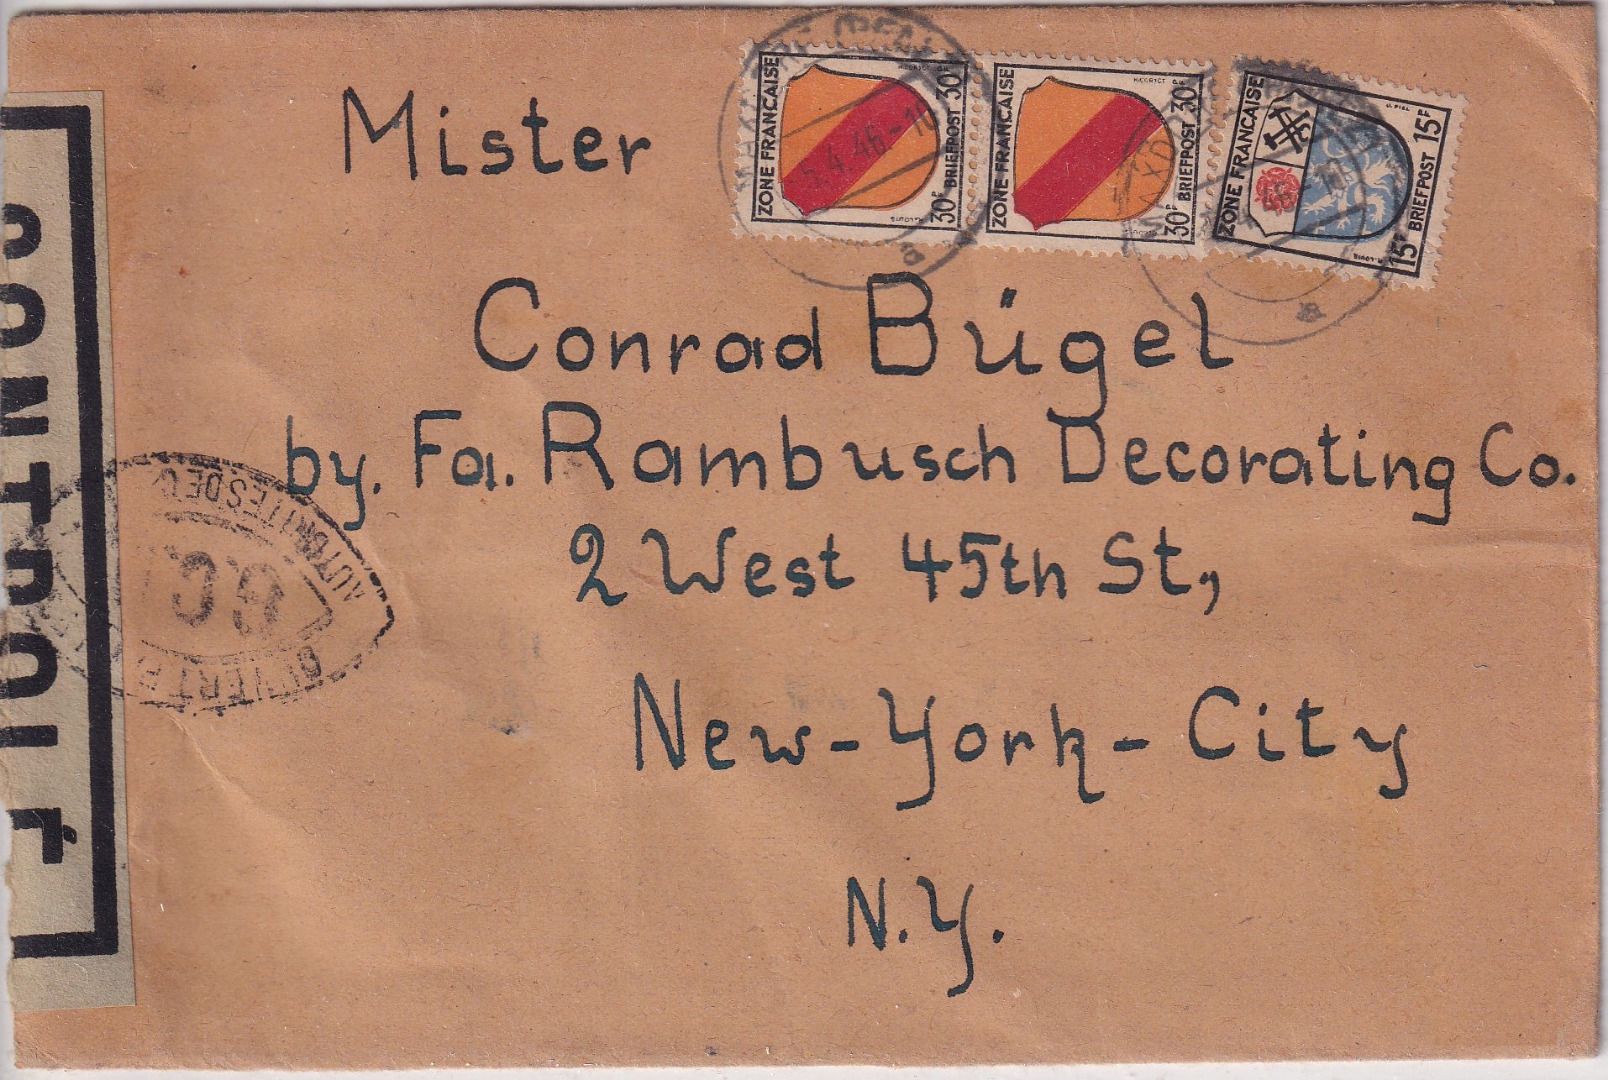 Mister
Conrad Bügel
by. Fa. Rambusch Decorating Co.
2 West 45th St,
New-York-City
N.Y.
ZONE FRANÇAISE
30F BRIEFPOST 30F
ZONE FRANÇAISE
30F BRIEFPOST 30F
ZONE FRANÇAISE
15F BRIEFPOST 15F
5.4.46-10
CONTROLE
AUTORITES DE
O.C.
OUVERT